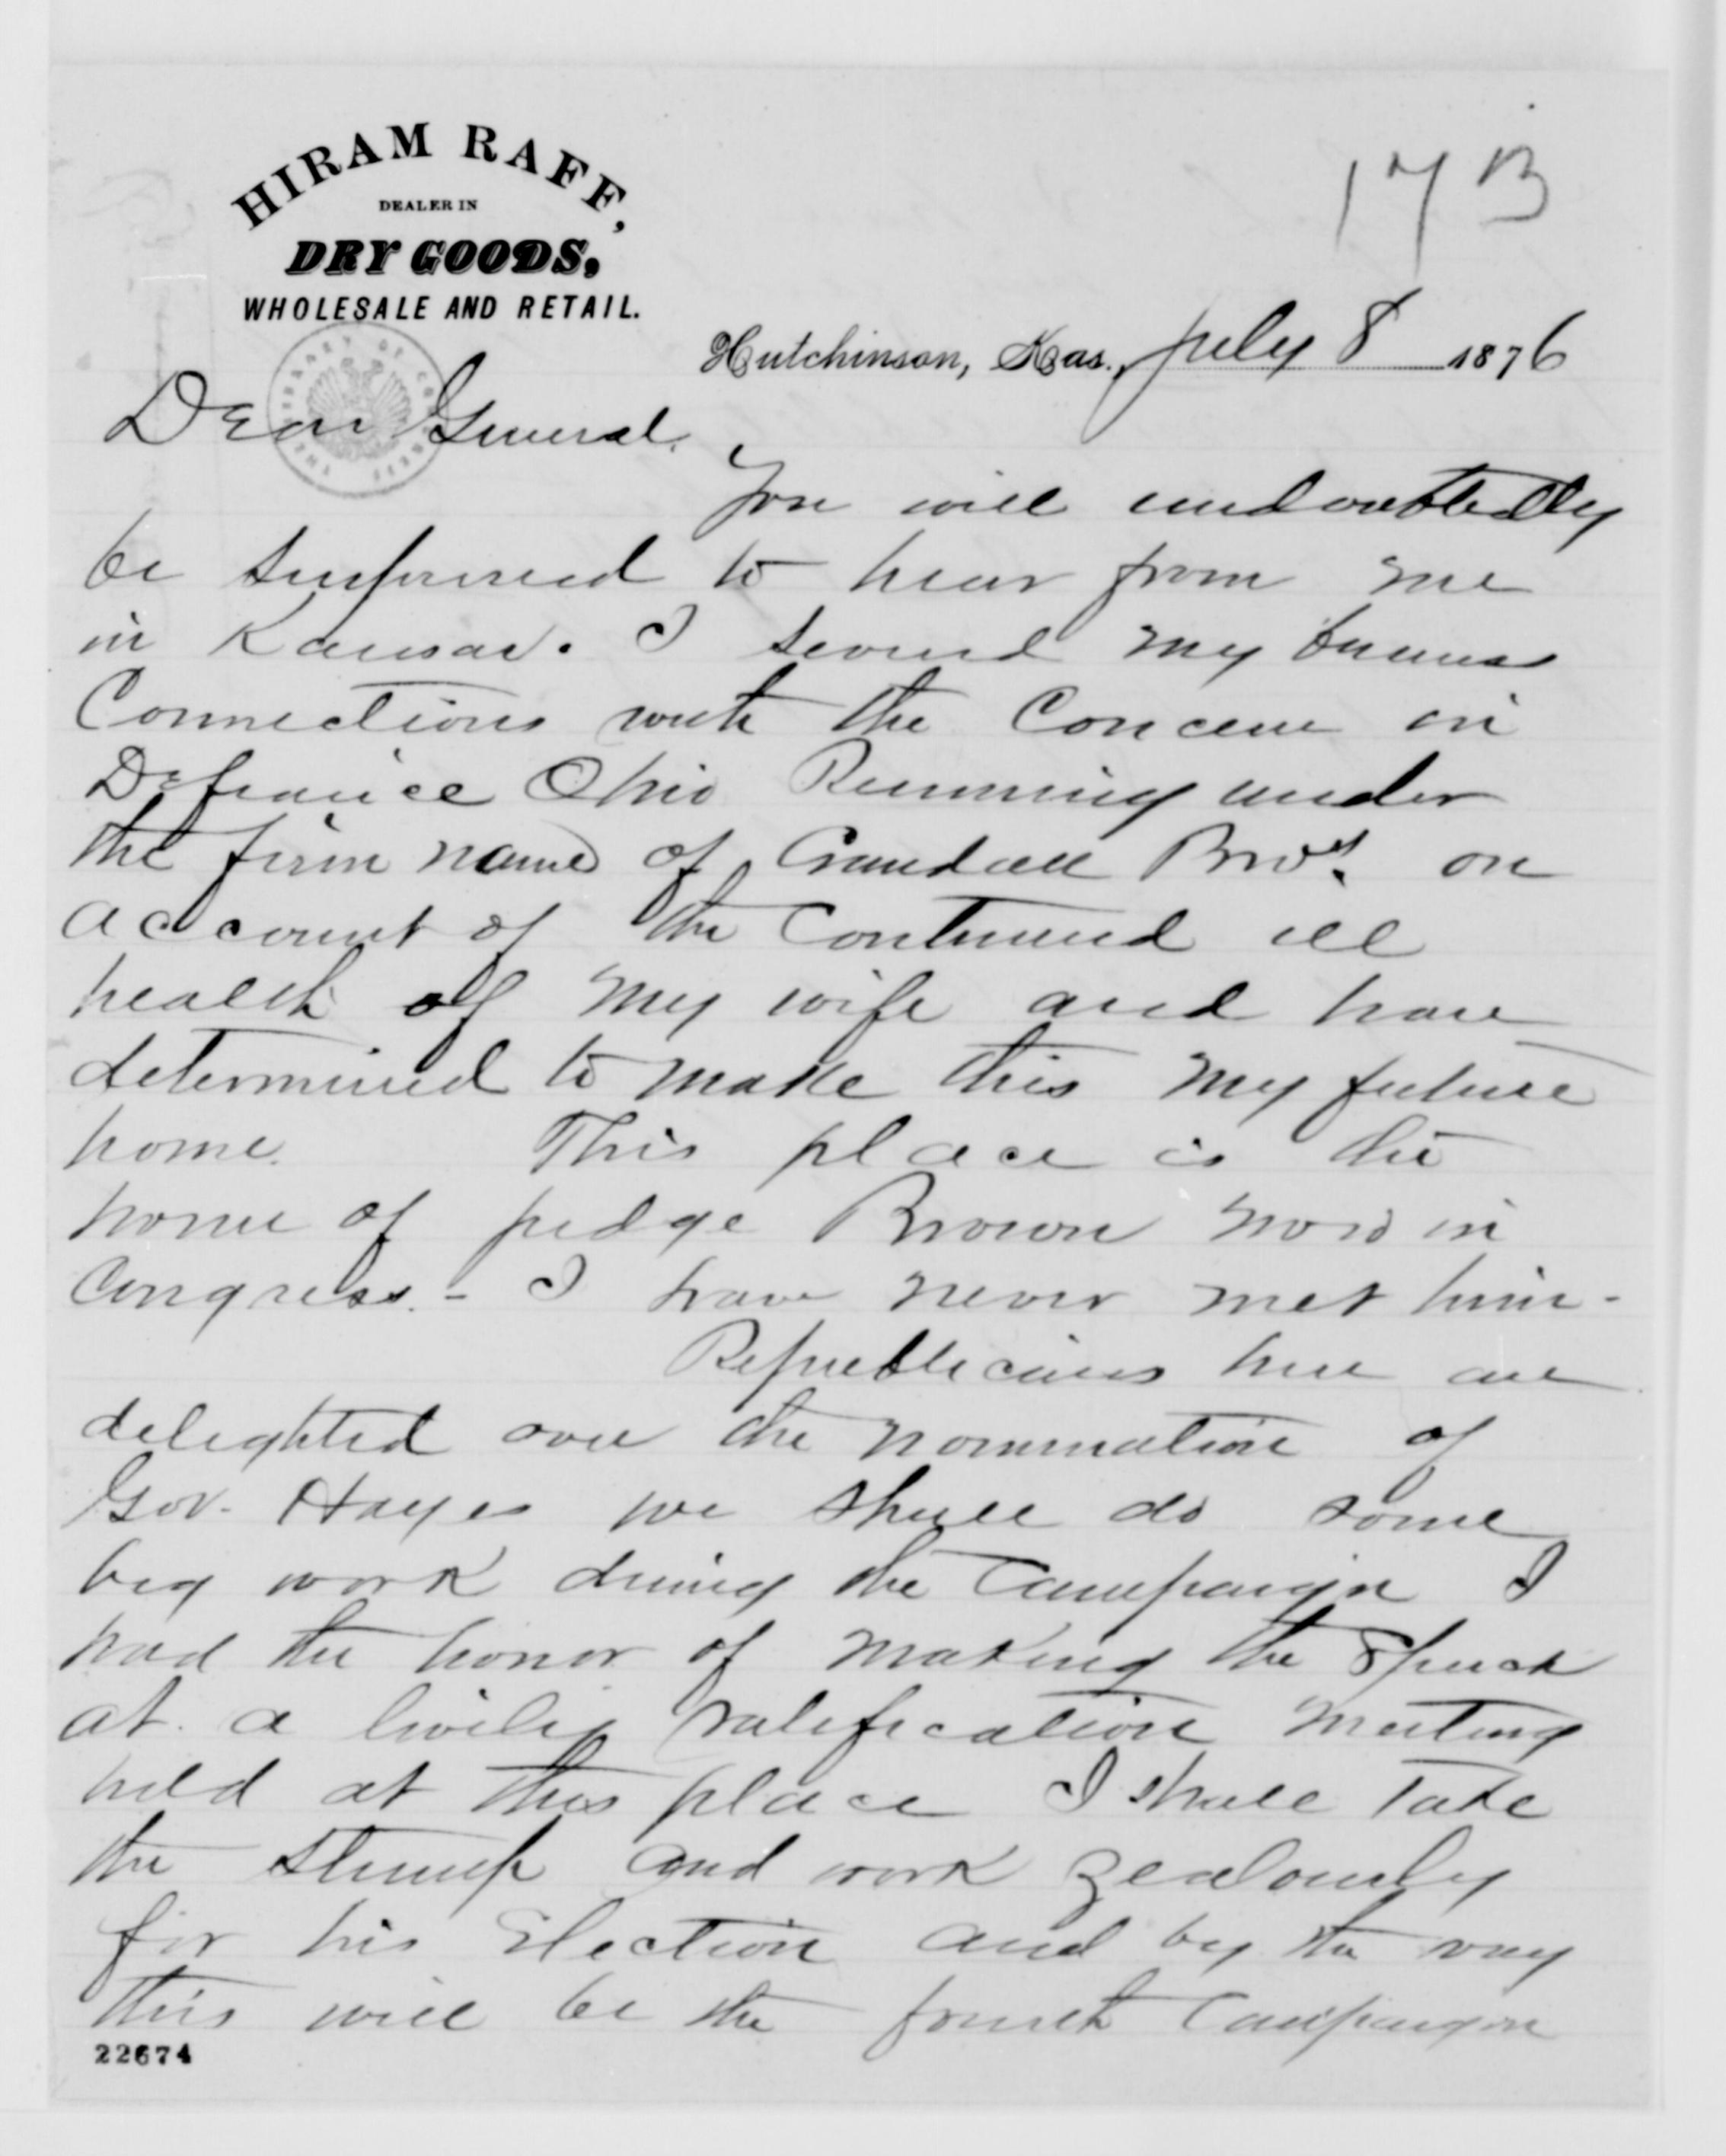 HIRAM RAFF,
DEALER IN
DRY GOODS,
WHOLESALE AND RETAIL.
17 B
Hutchinson, Kas., July 8 1876
THE LIBRARY OF CONGRESS
Dear General.
You will undoubtedly
be surprised to hear from me
in Kansas. I severed my business
Connections with the Concern in
Defiance Ohio Running under
the firm name of Crandall Bros. on
account of the Continued ill
health of my wife and have
determined to make this my future
home. This place is the
home of judge Brown now in
Congress. - I have never met him -
Republicans here are
delighted over the nomination of
Gov. Hayes we shall do some
big work during the Campaign I
had the honor of making the Speech
at a lively ratification meeting
held at this place I shall take
the stump and work zealously
for his Election and by the way
this will be the fourth Campaign
22674